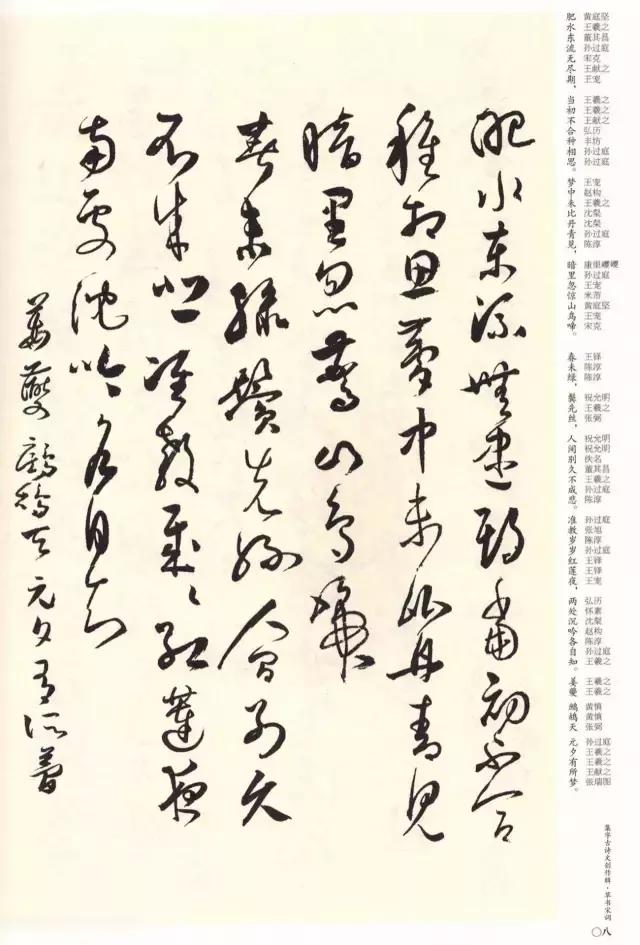 肥水東流無盡期當初不合
種相思夢中未比丹青見
暗里忽驚山鳥啼
春未綠鬢先絲人間別久
不成悲誰教歲々紅蓮夜
兩處沈吟各自知
姜夔鷓鴣天元夕有所夢
肥水东流无尽期，当初不合种相思。梦中未比丹青见，暗里忽惊山鸟啼。春未绿，鬓先丝，人间别久不成悲。准教岁岁红莲夜，两处沉吟各自知。姜夔 鹧鸪天 元夕有所梦。
黄庭坚
王羲之
董其昌
孙过庭
宋克
王献之
王宠
王羲之
王羲之
王献之
弘历
丰坊
孙过庭
孙过庭
王宠
赵构
王羲之
沈粲
沈粲
孙过庭
陈淳
康里巎巎
孙过庭
王宠
米芾
黄庭坚
王宠
宋克
王铎
陈淳
陈淳
祝允明
王羲之
张弼
祝允明
祝允明
佚名
董其昌
王羲之
孙过庭
陈淳
孙过庭
张旭
陈淳
孙过庭
王铎
王铎
王宠
弘历
怀素
沈粲
赵构
陈淳
孙过庭
王羲之
王羲之
王羲之
黄慎
黄慎
张弼
孙过庭
王羲之
王羲之
王献之
张瑞图
集字古诗文创作辑·草书宋词
〇八